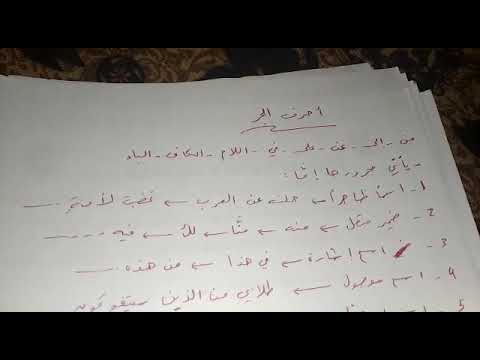 أحرف الجر
من - الى - عن - على - في - اللام - الكاف - الباء
- يأتي مجرورها إمّا:
1- اسمًا ظاهرًا ← عن العرب ← لأمتي .....
2- ضمير متصل ← منه ← منّا ← لكَ ← فيه ....
3- اسم إشارة ← في هذا ← من هذه ....
4- اسم موصول ← من الذين يتفوقون
5-